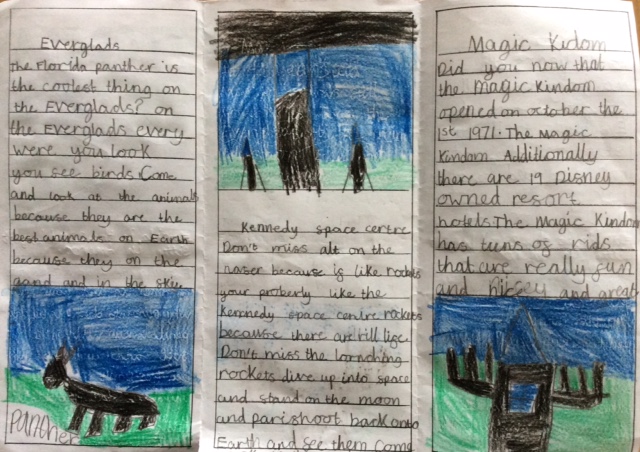 Everglads
The Florida panther is
the coolest thing on
the Everglads? on
the Everglads every
were you look
you see birds. Come
and look at the animals
because they are the
best animals on Earth
because they on the
and in the skiu
Panther
Kennedy space centre
Don't miss alt on the
naser because if like rockets
your properly like the
Kennedy space centre rockets
because there are rill
Don't miss the
rockets dive up into space
and stand on the moon
and parishoot back onto
Earth and see them Come
Magic Kidom
Did you now that
the Magic Kindom
opened on october the
1st 1971. The Magic
Kindom Additionally
there are 19 Disney
owned resort
hotels. The Magic Kindom
has tuns of rids
that are really fun
and and great